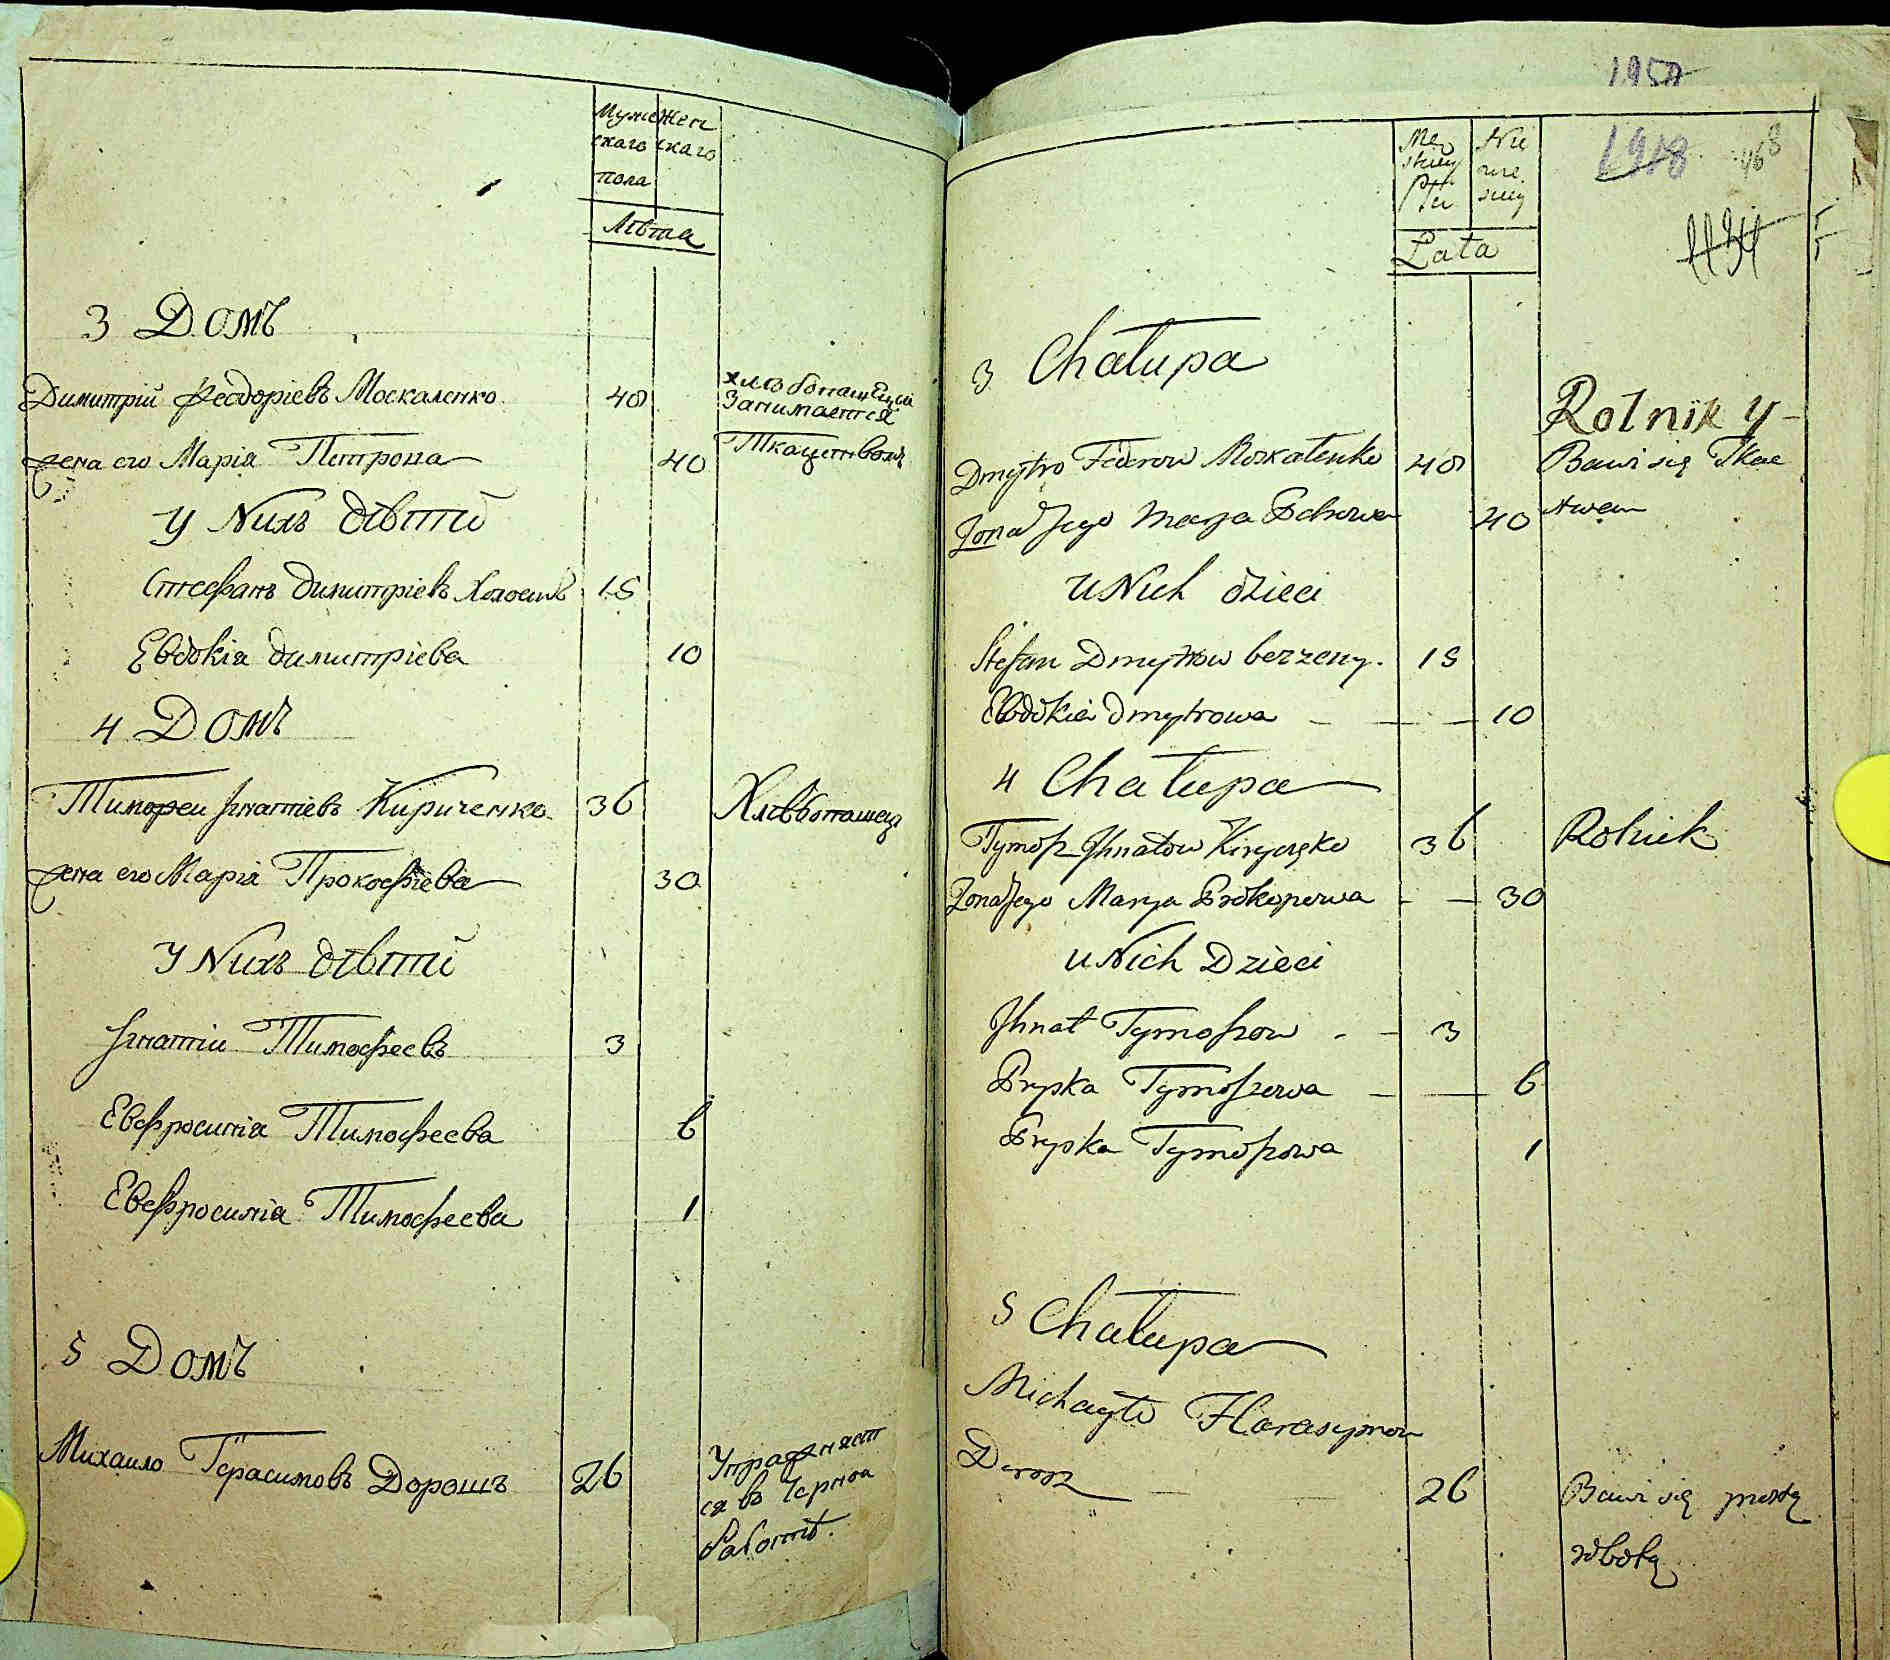 Мужескаго Женскаго
пола
Лѣта
3 Домъ
Димитрій Феодоріевъ Москаленко 40 хлѣбопашецъ
занимается
жена его Марія Петрова 40 Ткацтвомъ
У Nихъ дѣтти
Стефанъ Димитріевъ Холостъ 15
Евдокія Димитріева 10
4 Домъ
Тимофеи Игнатіевъ Кириченко 36 Хлѣбопашецъ
жена его Марія Прокофіева 30
У Nихъ дѣтти
Игнатіи Тимофеевъ 3
Евфросинія Тимофеева 6
Евфросинія Тимофеева 1
5 Домъ
Михаило Герасимовъ Дорошъ 26 Упражняет
ся въ Чорной
Работѣ.
1950
1918 468
1134
Męskiey Płci Niewieskiey
Lata
3 Chałupa
Rolnik y
Dmytro Fedorow Moskalenko 40 Bawi się Tkac
Żona Jego Marya Petrowa 40 twem
U Nich dzieci
Stefan Dmytrow bezżeny. 15
Ewdokia Dmytrowa 10
4 Chałupa
Tymosz Ihnatow Kiryczenko 36 Rolnik
Żona Jego Marya Prokopowa 30
U Nich Dzieci
Ihnat Tymoszow 3
Pryska Tymoszowa 6
Pryska Tymoszowa 1
5 Chałupa
Michayło Harasymow
Dorosz 26 Bawi się prostą
robotą